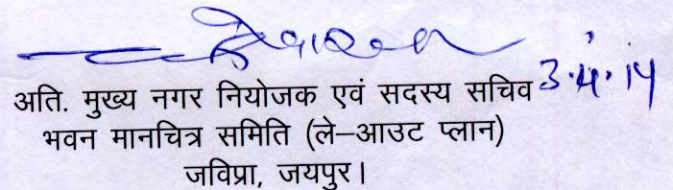 अति. मुख्य नगर नियोजक एवं सदस्य सचिव 3.4.14
भवन मानचित्र समिति (ले–आउट प्लान)
जविप्रा, जयपुर।